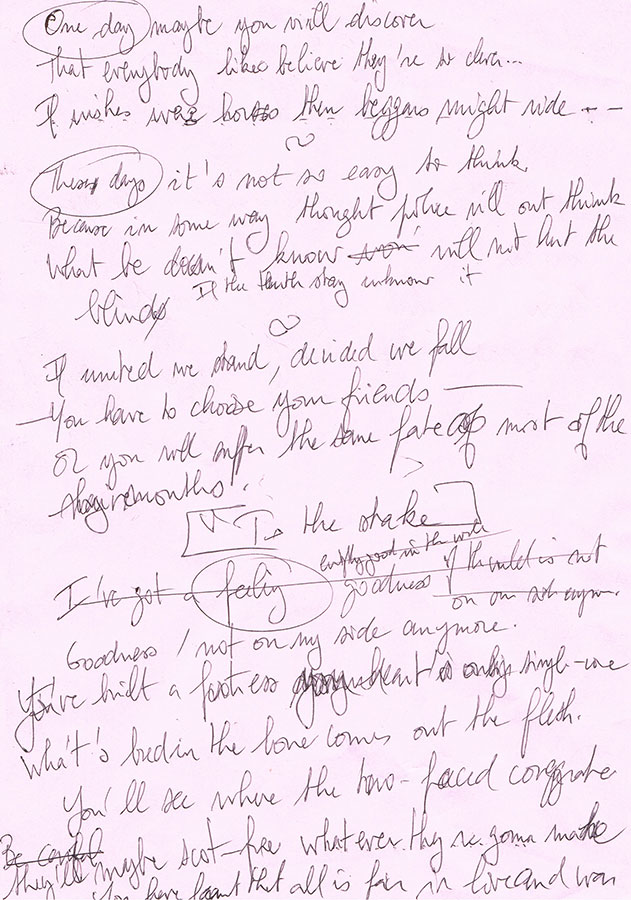 One day maybe you will discover
That everybody likes believe they're so clever...
If wishes was horses then beggars might ride - -
These days it's not so easy to think
Because in some way thought police will out think
What he doesn't know will not hurt the
blind If the truth stay unknow it
If united we stand, decided we fall
You have to choose your friends
Or you will suffer the same fate of most of the
To the stake
I've got a feeling goodness
Goodness / not on my side anymore.
You've built a fortress heart is only single-one
What's bred in the bone comes out the flesh.
You'll see where the two-faced congregate
Be careful
They'll maybe scot-free whatever they're gonna make
You have learnt that all is fair in live and war